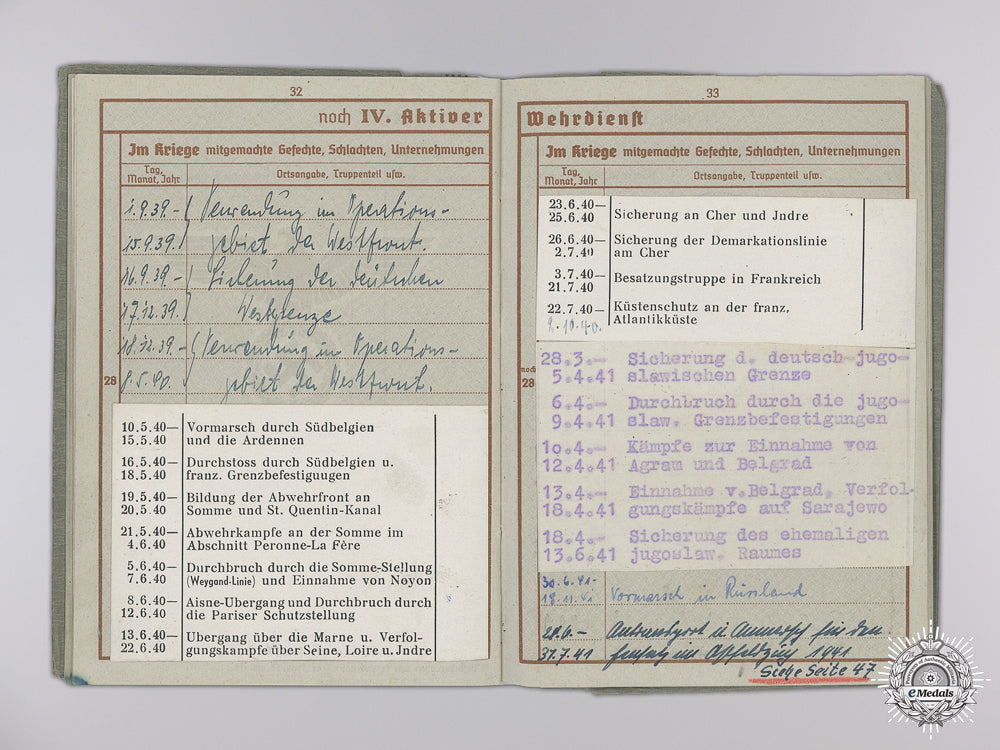 32
noch IV. Aktiver
Im Kriege mitgemachte Gefechte, Schlachten, Unternehmungen
Tag, Monat, Jahr
Ortsangabe, Truppenteil usw.
1.9.39.- Verwendung im Operations-
15.9.39. gebiet der Westfront.
16.9.39.- Sicherung der deutschen
17.12.39. Westgrenze
18.12.39.- Verwendung im Operations-
28 8.5.40. gebiet der Westfront.
10.5.40— Vormarsch durch Südbelgien
15.5.40 und die Ardennen
16.5.40— Durchstoss durch Südbelgien u.
18.5.40 franz. Grenzbefestiguugen
19.5.40— Bildung der Abwehrfront an
20.5.40 Somme und St. Quentin-Kanal
21.5.40— Abwehrkampfe an der Somme im
4.6.40 Abschnitt Peronne-La Fère
5.6.40— Durchbruch durch die Somme-Stellung
7.6.40 (Weygand-Linie) und Einnahme von Noyon
8.6.40— Aisne-Ubergang und Durchbruch durch
12.6.40 die Pariser Schutzstellung
13.6.40— Ubergang über die Marne u. Verfol-
22.6.40 gungskampfe über Seine, Loire u. Jndre
33
Wehrdienst
Im Kriege mitgemachte Gefechte, Schlachten, Unternehmungen
Tag, Monat, Jahr
Ortsangabe, Truppenteil usw.
23.6.40—
25.6.40 Sicherung an Cher und Jndre
26.6.40— Sicherung der Demarkationslinie
2.7.40 am Cher
3.7.40— Besatzungstruppe in Frankreich
21.7.40
22.7.40— Küstenschutz an der franz,
2.10.40. Atlantikküste
28.3.— Sicherung d. deutsch-jugo-
noch 28
5.4.41 slawischen Grenze
6.4.— Durchbruch durch die jugo-
9.4.41 slaw. Grenzbefestigungen
1o.4.— Kämpfe zur Einnahme von
12.4.41 Agram und Belgrad
13.4.— Einnahme v.Belgrad, Verfol-
18.4.41 gungskämpfe auf Sarajewo
18.4.— Sicherung des ehemaligen
13.6.41 jugoslaw. Raumes
30.6.41-
18.11.41 Vormarsch in Russland
28.6.— Antransport u. Anmarsch für den
31.7.41 Einsatz im Ostfeldzug 1941
Siehe Seite 47
eMedals